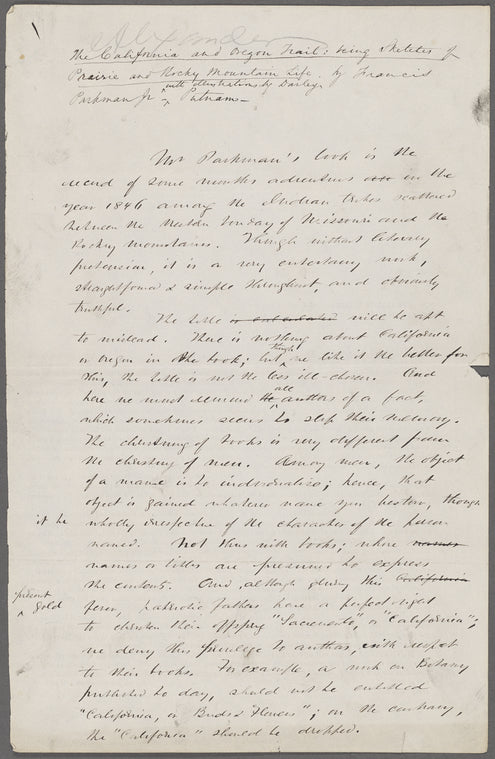 Alexander
The California and Oregon Trail: being Sketches of
Prairie and Rocky Mountain Life. by Francis
Parkman Jr with illustrations by Darley. Putnam —
Mr Parkman's book is the
record of some months adventures in the
year 1846 among the Indian tribes scattered
between the Western boundary of Missouri and the
Rocky mountains. Though without literary
pretension, it is a very entertaining work,
straightforward & simple throughout, and obviously
truthful.
The title is calculated will be apt
to mislead. There is nothing about California
or Oregon in the book; but though we like it the better for
this, the title is not the less ill-chosen. And
here we must remind all authors of a fact,
which sometimes seems to slip their memory.
The christening of books is very different from
the christening of men. Among men, the object
of a name is to individualise; hence, that
object is gained whatever name you bestow, though
it be wholly irrespective of the character of the person
named. Not thus with books; whose names
names or titles are presumed to express
the contents. And, although during this California
present gold fever, patriotic fathers have a perfect right
to christen their offspring "Sacramento", or "California";
we deny this privilege to authors, with respect
to their books. For example, a work on Botany
published to day, should not be entitled
"California, or Buds & Flowers"; on the contrary,
the "California" should be dropped.